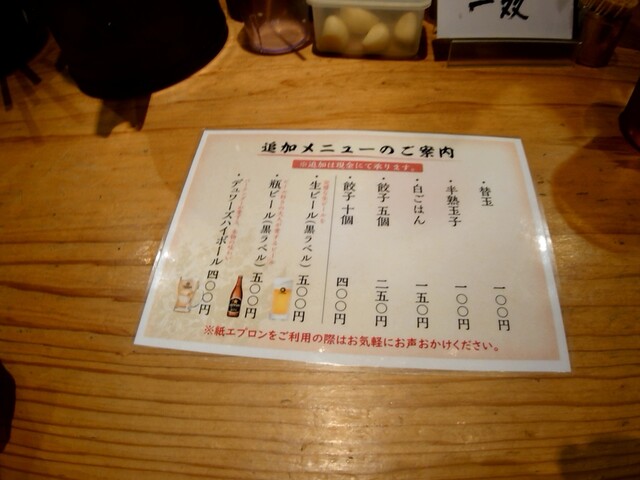 一双
追加メニューのご案内
※追加は現金にて承ります。
・替玉 一〇〇円
・半熟玉子 一〇〇円
・白ごはん 一五〇円
・餃子 五個 二五〇円
・餃子 十個 四〇〇円
・生ビール(黒ラベル) 五〇〇円
・瓶ビール(黒ラベル) 五〇〇円
・デュワーズハイボール 四〇〇円
※紙エプロンをご利用の際はお気軽にお声おかけください。